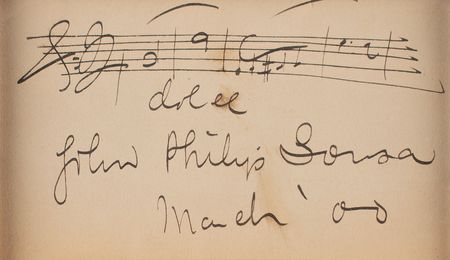 dolce
John Philip Sousa
March '00